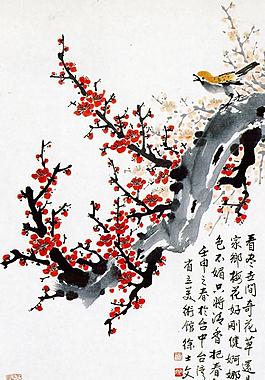 看盡世間奇花草還是
家鄉梅花好剛健婀娜
色不媚只將清香把春
壬申之春於台中台灣
省立美術館徐士文